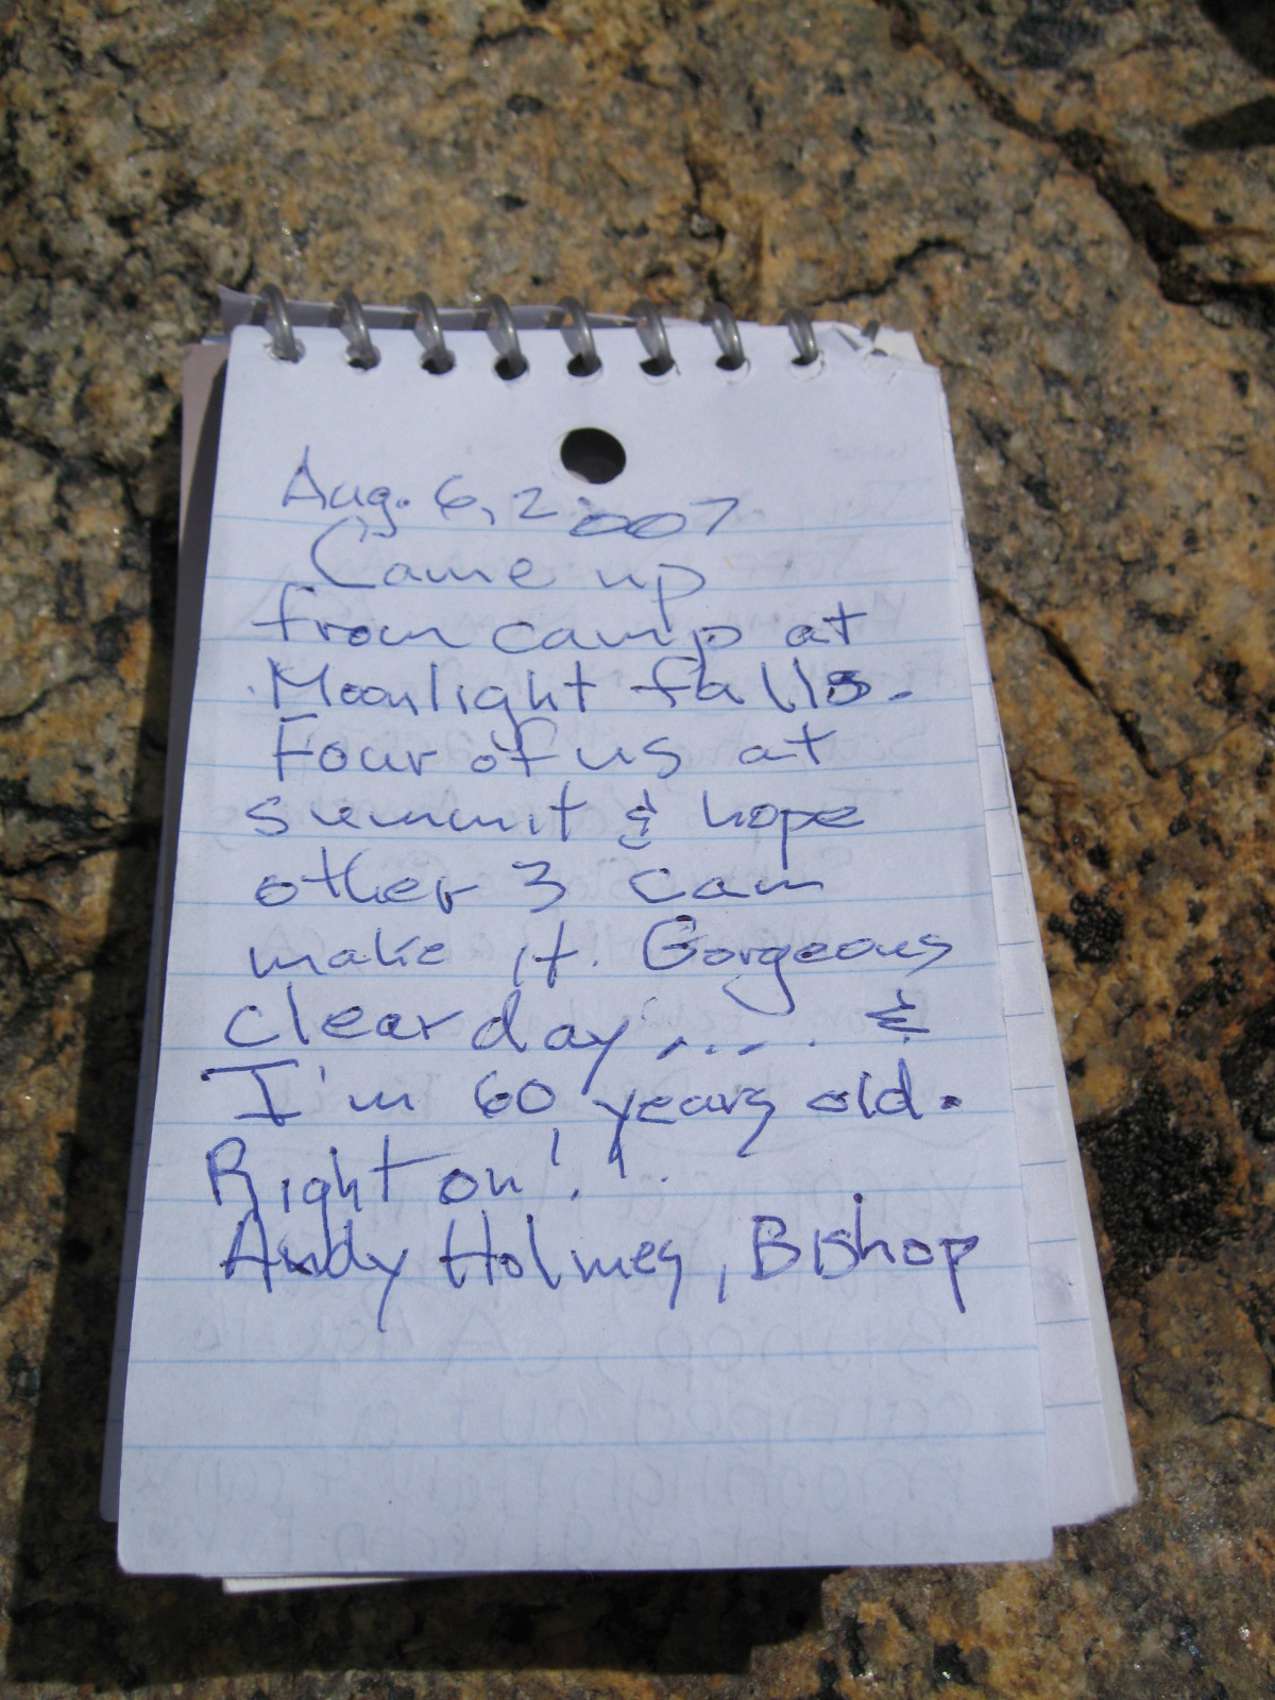 Aug. 6, 2007
Came up
from camp at
Moonlight falls.
Four of us at
summit & hope
other 3 can
make it. Gorgeous
clear day..... &
I'm 60 years old.
Right on!!
Andy Holmes, Bishop